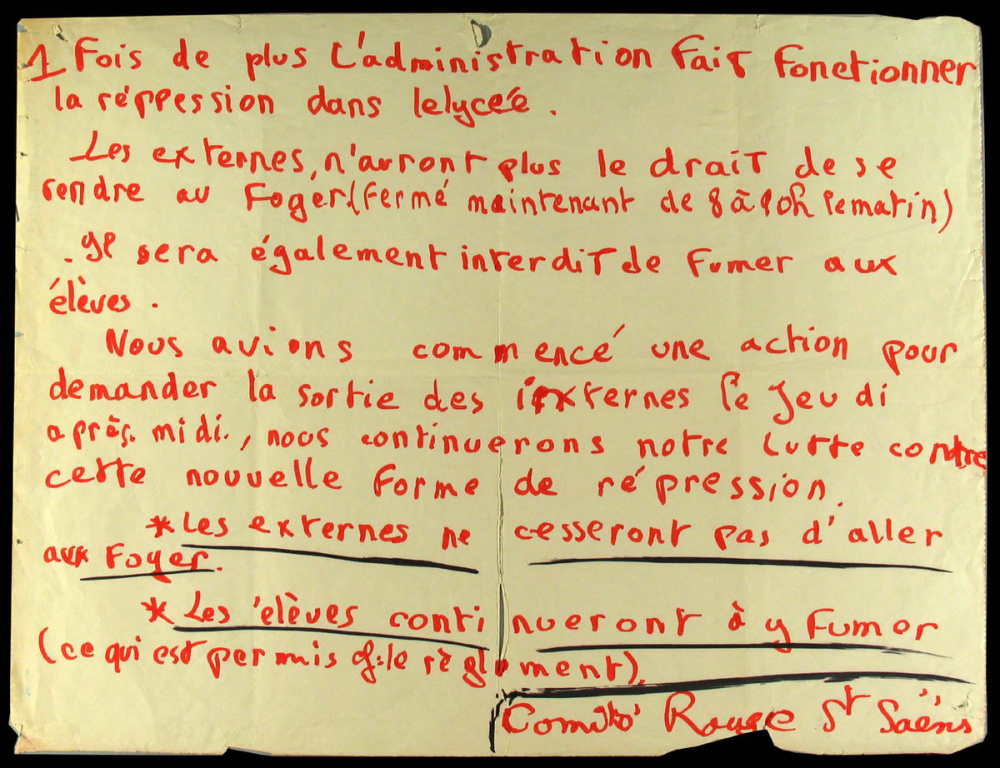 1 Fois de plus L'administration fait fonctionner
la réppession dans lelycée.
Les externes, n'auront plus le drait de se
rendre au Foyer (fermé maintenant de 8 à 10h le matin)
. Il sera également interdit de fumer aux
élèves.
Nous avions commencé une action pour
demander la sortie des internes le jeudi
après. midi., nous continuerons notre lutte contre
cette nouvelle forme de répression.
* Les externes ne cesseront pas d'aller
aux Foyer.
* Les élèves continueront à y fumer
(ce qui est permis cf: le règlement).
Comité Rouge St Saëns